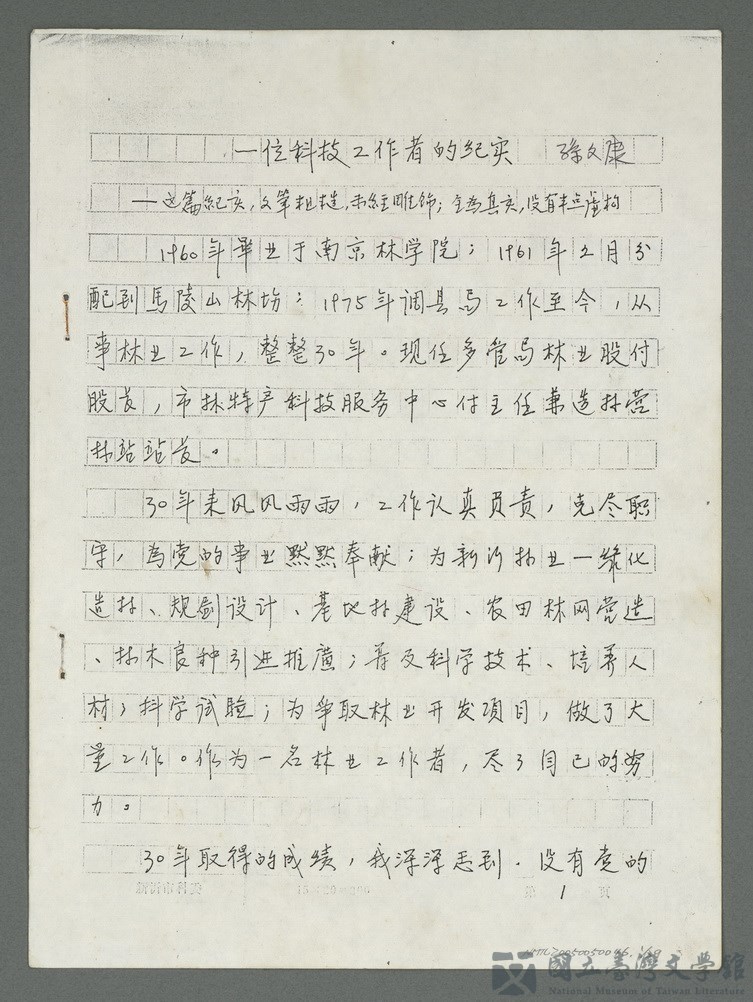 一位科技工作者的纪实 孙文康
—这篇纪实，文笔粗糙，未经雕饰；全为真实，没有半点虚构
1960年畢业于南京林学院；1961年2月分
配到馬陵山林场；1975年调县局工作至今，从
事林业工作，整整30年。现任多管局林业股付
股长，市林特产科技服务中心付主任兼造林营
林站站长。
30年来风风雨雨，工作认真负责，克尽职
守，為党的事业默默奉献；为新沂林业—绿化
造林、规划设计、基地林建设、农田林网营造
、林木良种引进推廣；普及科学技术、培养人
材；科学试验；为爭取林业开发項目，做了大
量工作。作为一名林业工作者，尽了自己的努
力。
30年取得的成绩，我深深忠到．没有党的
1
國立臺灣文學館
National Museum of Taiwan Literature